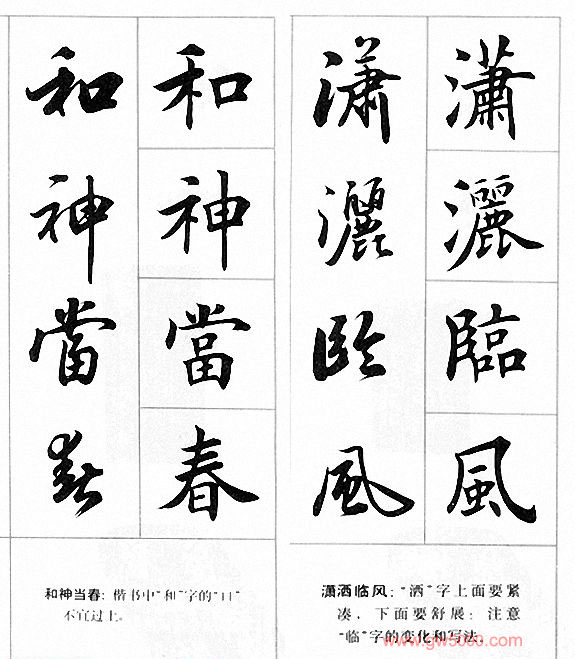 瀟灑臨風
瀟灑臨風
和神當春
和神當春
潇洒临风："洒"字上面要紧
凑，下面要舒展；注意
"临"字的变化和写法。
和神当春：楷书中"和"字的"口"
不宜过上。
www.gw5000.com